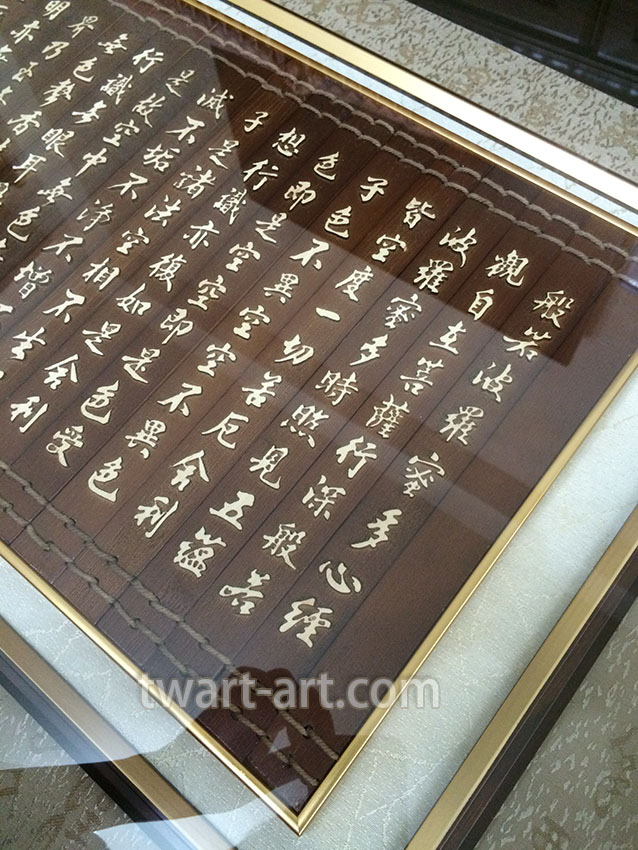 般若波羅蜜多心經
觀自在菩薩行深般若
波羅蜜多時照見五蘊
皆空度一切苦厄舍利
子色不異空空不異色
色即是空空即是色受
想行識亦復如是舍利
子是諸法空相不生
滅不垢不淨不增
是故空中無色
行識無眼耳
無色聲香
界乃至
明亦
twart-art.com